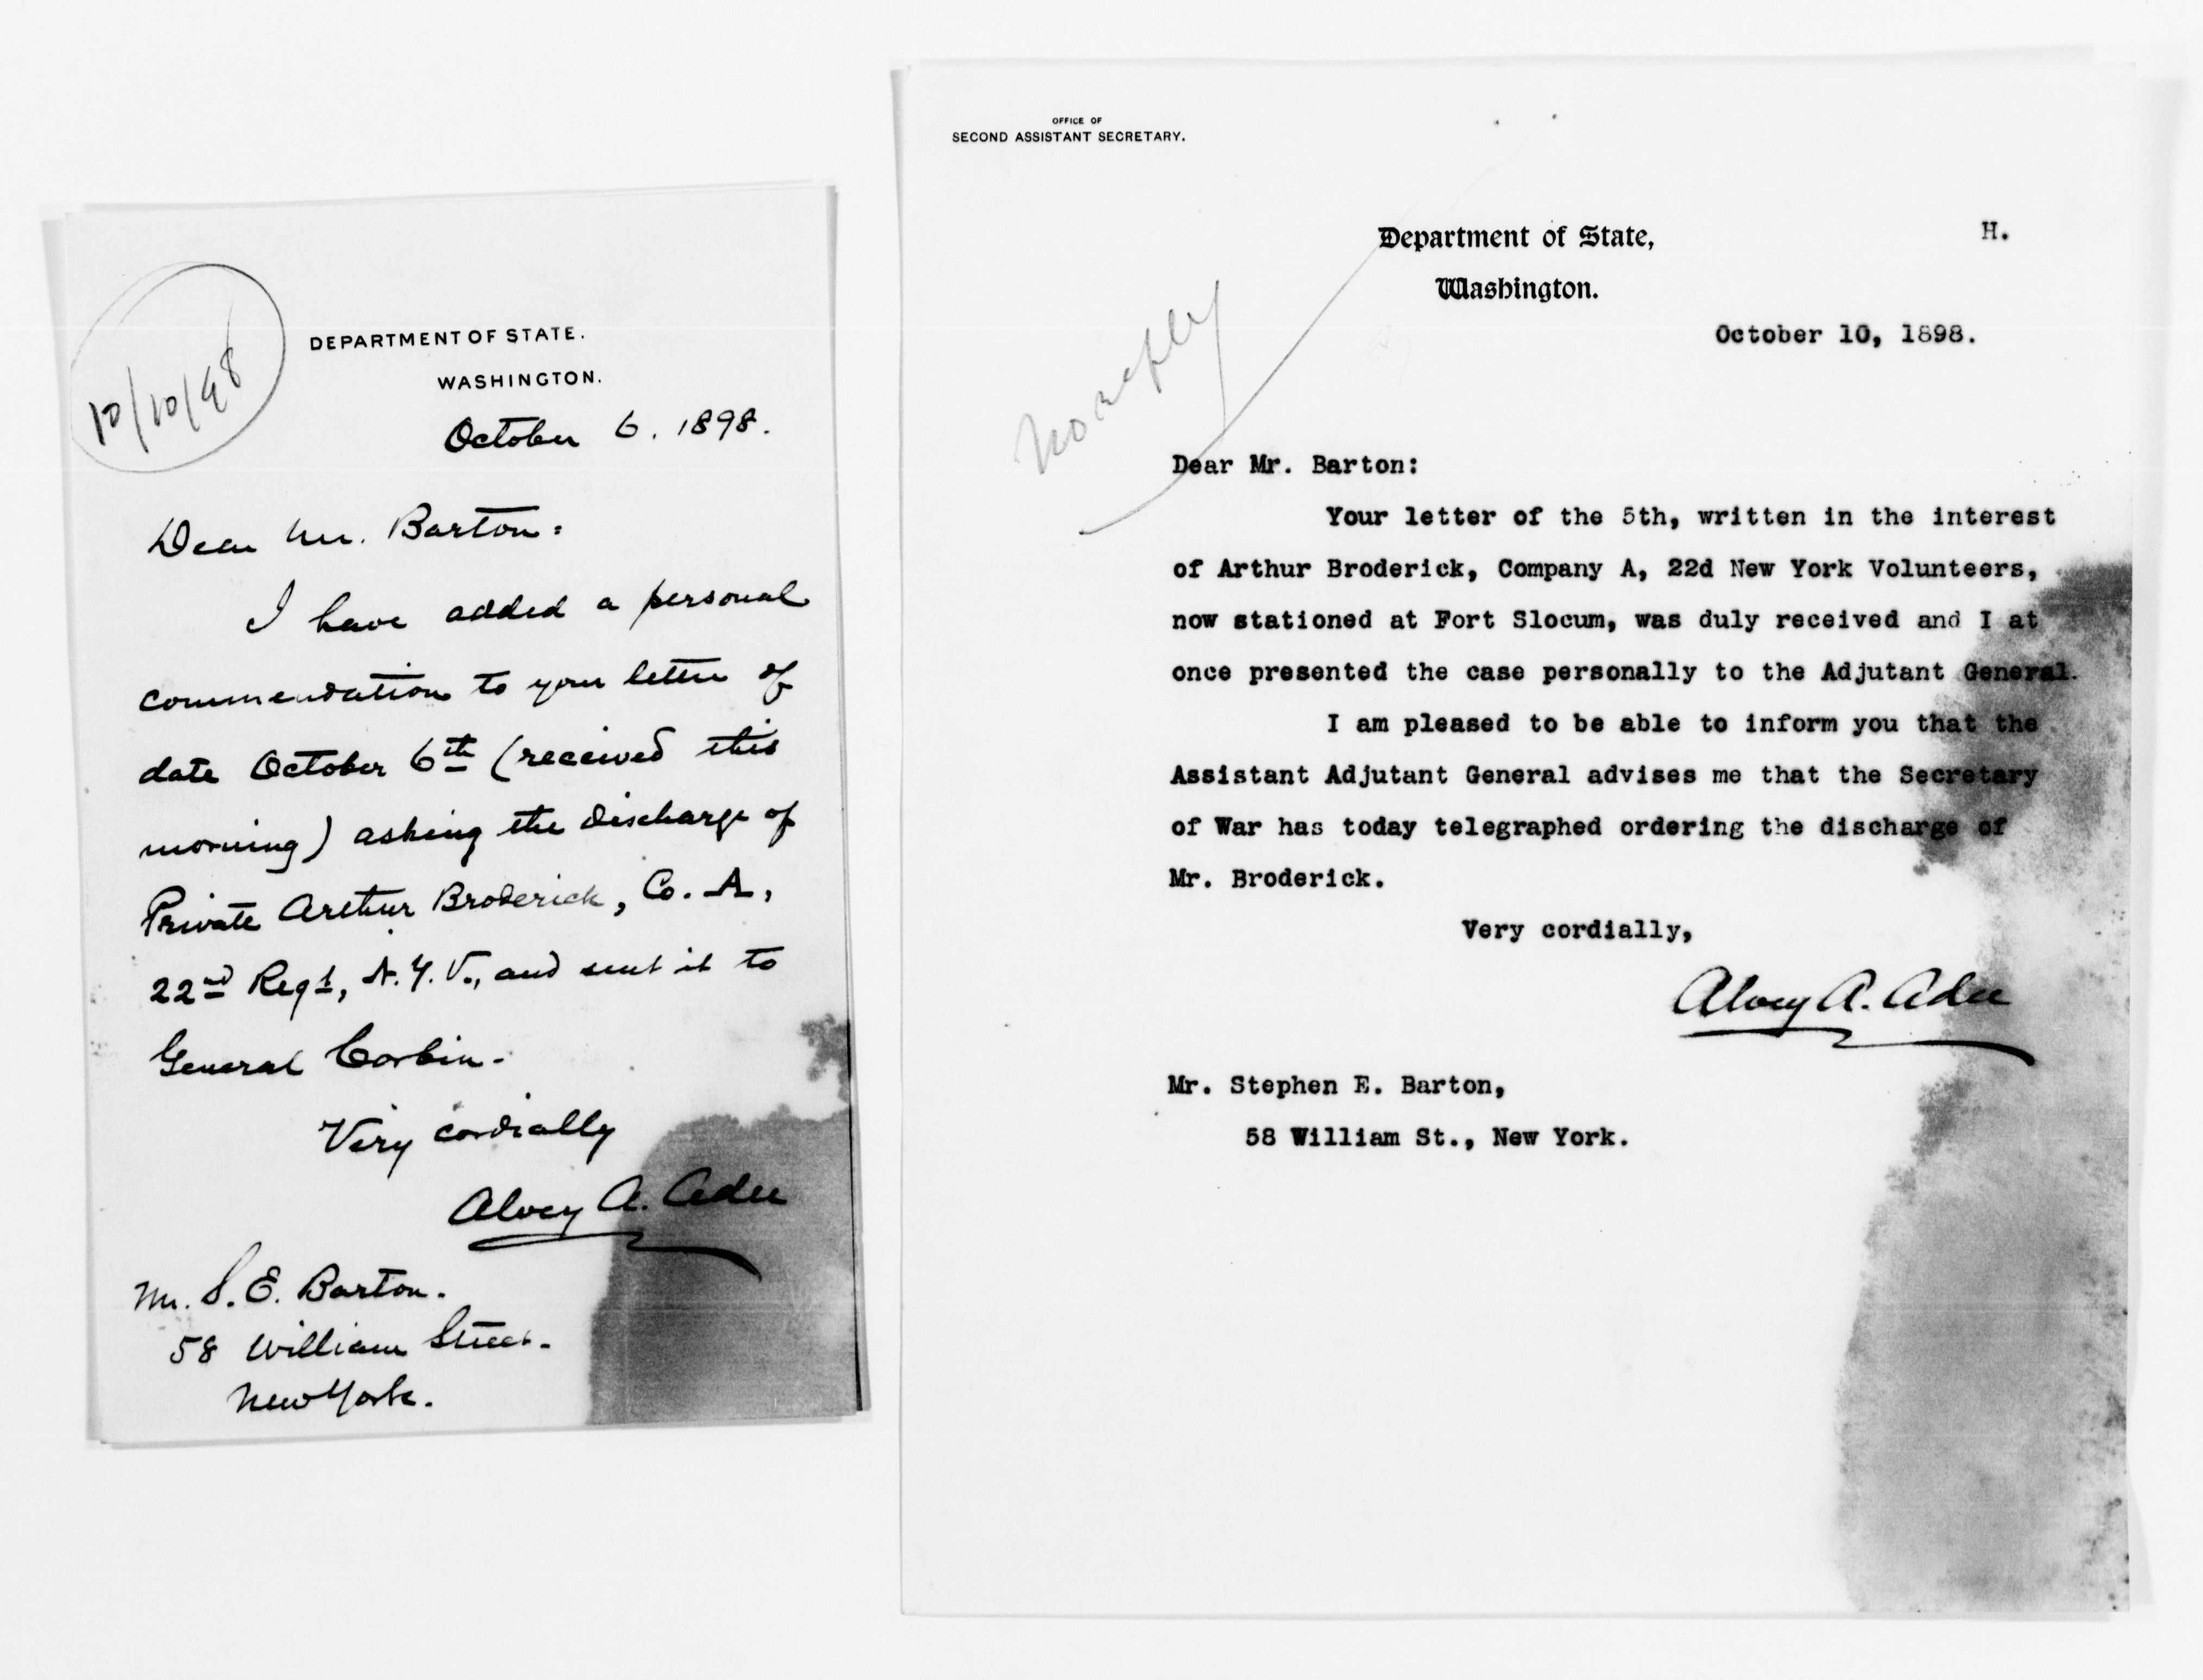 10/10/98
DEPARTMENT OF STATE.
WASHINGTON.
October 6. 1898.
Dear Mr. Barton:
I have added a personal
commendation to your letter of
date October 6th (received this
morning) asking the discharge of
Private Arthur Broderick, Co. A,
22nd Regt, N.Y.V., and sent it to
General Corbin.
Very cordially
Alvey A. Adee
Mr. S. E. Barton.
58 William Street.
New York.
OFFICE OF
SECOND ASSISTANT SECRETARY.
Department of State,
H.
Washington.
October 10, 1898.
No reply
Dear Mr. Barton:
Your letter of the 5th, written in the interest
of Arthur Broderick, Company A, 22d New York Volunteers,
now stationed at Fort Slocum, was duly received and I at
once presented the case personally to the Adjutant General.
I am pleased to be able to inform you that the
Assistant Adjutant General advises me that the Secretary
of War has today telegraphed ordering the discharge of
Mr. Broderick.
Very cordially,
Alvey A. Adee
Mr. Stephen E. Barton,
58 William St., New York.